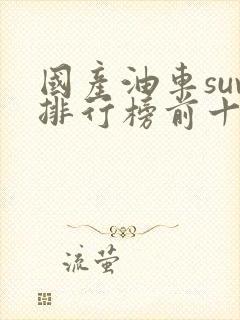 國產油車suv
排行榜前十
流萤